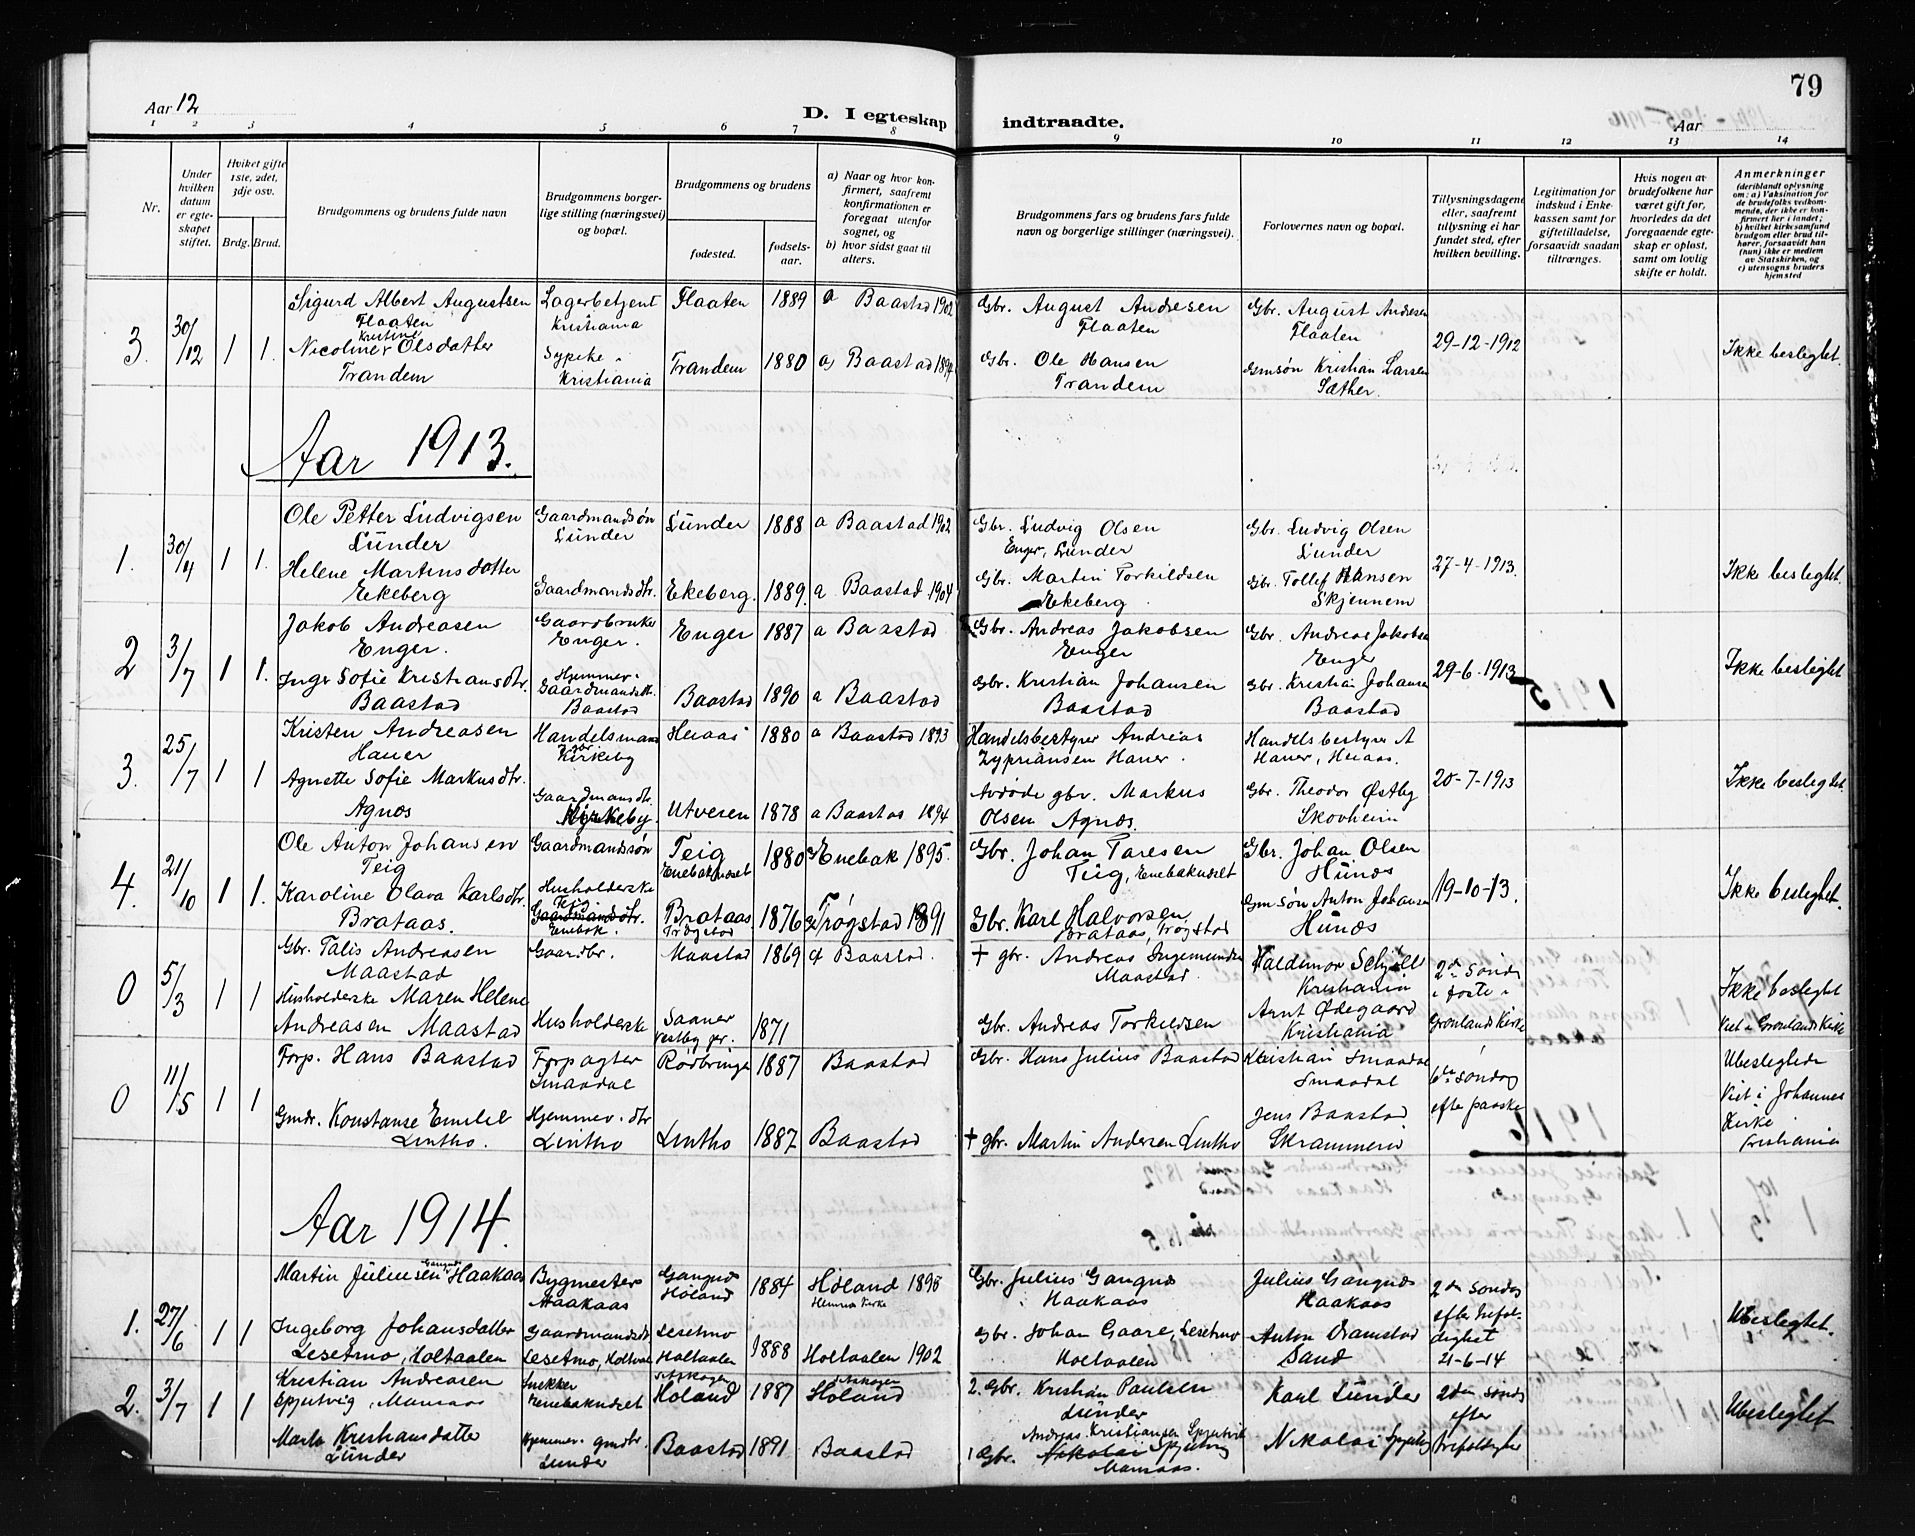 79
Aar 12
D. I egteskap indtraadte.
Aar
1 2 3 4 5 6 7 8 9 10 11 12 13 14
Nr.
Under hvilken datum er egteskapet stiftet.
Hviket gifte 1ste, 2det, 3dje osv.
Brdg. Brud.
Brudgommens og brudens fulde navn
Brudgommens borgerlige stilling (næringsvei) og bopæl.
Brudgommens og brudens
fødested.
fødselsaar.
a) Naar og hvor konfirmert, saafremt konfirmationen er foregaat utenfor sognet, og
b) hvor sidst gaat til alters.
Brudgommens fars og brudens fars fulde navn og borgerlige stillinger (næringsvei).
Forlovernes navn og bopæl.
Tillysningsdagene eller, saafremt tillysning ei har fundet sted, efter hvilken bevilling.
Legitimation for indskud i Enkekassen samt for giftetilladelse, forsaavidt saadan tiltrænges.
Hvis nogen av brudefolkene har været gift før, hvorledes da det foregaaende egteskap er opløst, samt om lovlig skifte er holdt.
Anmerkninger
(deriblandt oplysning om: a) Vaksination for de brudefolks vedkommende, der ikke er konfirmert her i landet;
b) hvilket kirkesamfund brudgom eller brud tilhører, forsaavidt han (hun) ikke er medlem av Statskirken, og
c) utensogns bruders hjemsted
3. 30/12 1 1. Sigurd Albert Augustsen Flaaten Lagerbetjent Kristiania Flaaten 1889 a Baastad 1902 Gbr. August Andresen Flaaten Gbr. August Andresen Flaaten 29-12-1912 Ikke beslegtet.
Nicoline Kristine Olsdatter Trandem Sypike Kristiania Trandem 1880 a) Baastad Gbr. Ole Hansen Trandem Gmsøn Kristian Larsen Sæther.
Aar 1913.
1. 30/4 1 1. Ole Petter Ludvigsen Lunder Gaardmandsøn Lunder Lunder 1888 a Baastad 1902 Gbr. Ludvig Olsen Enger, Lunder Gbr. Ludvig Olsen Lunder 27-4-1913. Ikke beslegtet.
Helene Martinsdatter Ekeberg Gaardmandsdtr. Ekeberg. 1889. a Baastad 1904 Gbr. Martin Torkildsen Ekeberg Gbr. Tollef Hansen Skjennem
2 3/7 1 1. Jakob Andreasen Enger. Gaardbruker Enger. Enger 1887 a Baastad Gbr. Andreas Jakobsen Enger Gbr. Andreas Jakobsen Enger 29-6-1913 Ikke beslegtet
Inger Sofie Kristiansdtr. Baastad Hjemmev. Gaardmandsdt. Baastad Baastad 1890 a Baastad Gbr. Kristian Johansen Baastad Gbr. Kristian Johansen Baastad
3. 25/7 1 1 Kristen Andreasen Haner Handelsmand Kirkeby 1880 a Baastad 1895 Handelsbestyrer Andreas Zypriansen Haner. Handelsbestyrer A Haner, 20-7-1913 Ikke beslegtet.
Agnette Sofie Markusdtr. Agnæs Gaardmandsdtr. Kirkeby Utvesen 1878 a Baastad 1894 Avdøde gbr. Markus Olsen Agnæs. Gbr. Theodor Østby Skovheim
4. 21/10 1 1. Ole Anton Johansen Teig Gaardmandsøn Teig Enebaknæset 1880 a Enebak 1895. Gbr. Johan Taresen Teig, Enebaknæset Gbr. Johan Olsen Hunæs 19-10-13. Ikke beslegtet.
Karoline Olava Karlsdtr. Brataas. Husholderske Teig Gaardmandsdtr. Enebak. Brataas Trøgstad 1876 a Trøgstad 1891 Gbr. Karl Halvorsen Brataas, Trøgstad Gmsøn Anton Johansen Hunæs
0 5/3 1 1 Gbr. Talis Andreasen Maastad Gaardbr. Maastad 1869 a Baastad. + gbr. Andreas Ingemundsen Maastad Valdemar Kristiania 2den sønd. i faste i Grønlands Kirke Ikke beslegtet Viet i Grønlands Kirke
Husholderske Maren Helene Andreasen Maastad Husholderske Saaner Vestby 1871 Gbr. Andreas Torkildsen Arnt Ødegaard Kristiania
0 11/5 1 1 Forp. Hans Baastad Forpagter Smaadal 1887 Baastad Gbr. Hans Julius Baastad Kristian Smaadal Smaadal 6te søndag efter paaske Ubeslegtede Viet i Johannes Kirke Kristiania
Gmdr. Konstanse Emilie Lintho. Hjemmev. dtr Lintho Lintho 1887 Baastad + gbr. Martin Andersen Lintho Jens Baastad
Aar 1914.
1. 27/6 1 1 Martin Juliussen Gangnæs Haakaas Bygmester Haakaas Gangnæs Høland 1884 Høland 1898 Hemnes Kirke Gbr. Julius Gangnæs Haakaas Julius Gangnæs Haakaas 2den søndag efter trefoldighet 21-6-14 Ubeslegtet.
Ingeborg Johansdatter Lesetmo, Holtaalen Gaardmandsdtr Lesetmo, Holtaal Lesetmo Holtaalen 1888 Holtaalen 1902 Gbr. Johan Gaare, Lesetmo Holtaalen Anton Ramstad Sand
2. 3/7 1 1 Kristian Andreasen Spjutvig, Mansaas Snekker Enebaknæset Høland 1887 Høland 2. Gbr. Kristian Paulsen Lunder Karl Lunder 2den sønd. efter trefoldighet Ubeslegtet
Marta Kristiansdatter Lunder Hjemmev. gmdtr. Lunder Baastad 1891 Baastad Andreas Kristiansen Spjutvik 1 Gbr. Nikolai Spjutvig Mansaas. Nikolai Spjutvig
1915